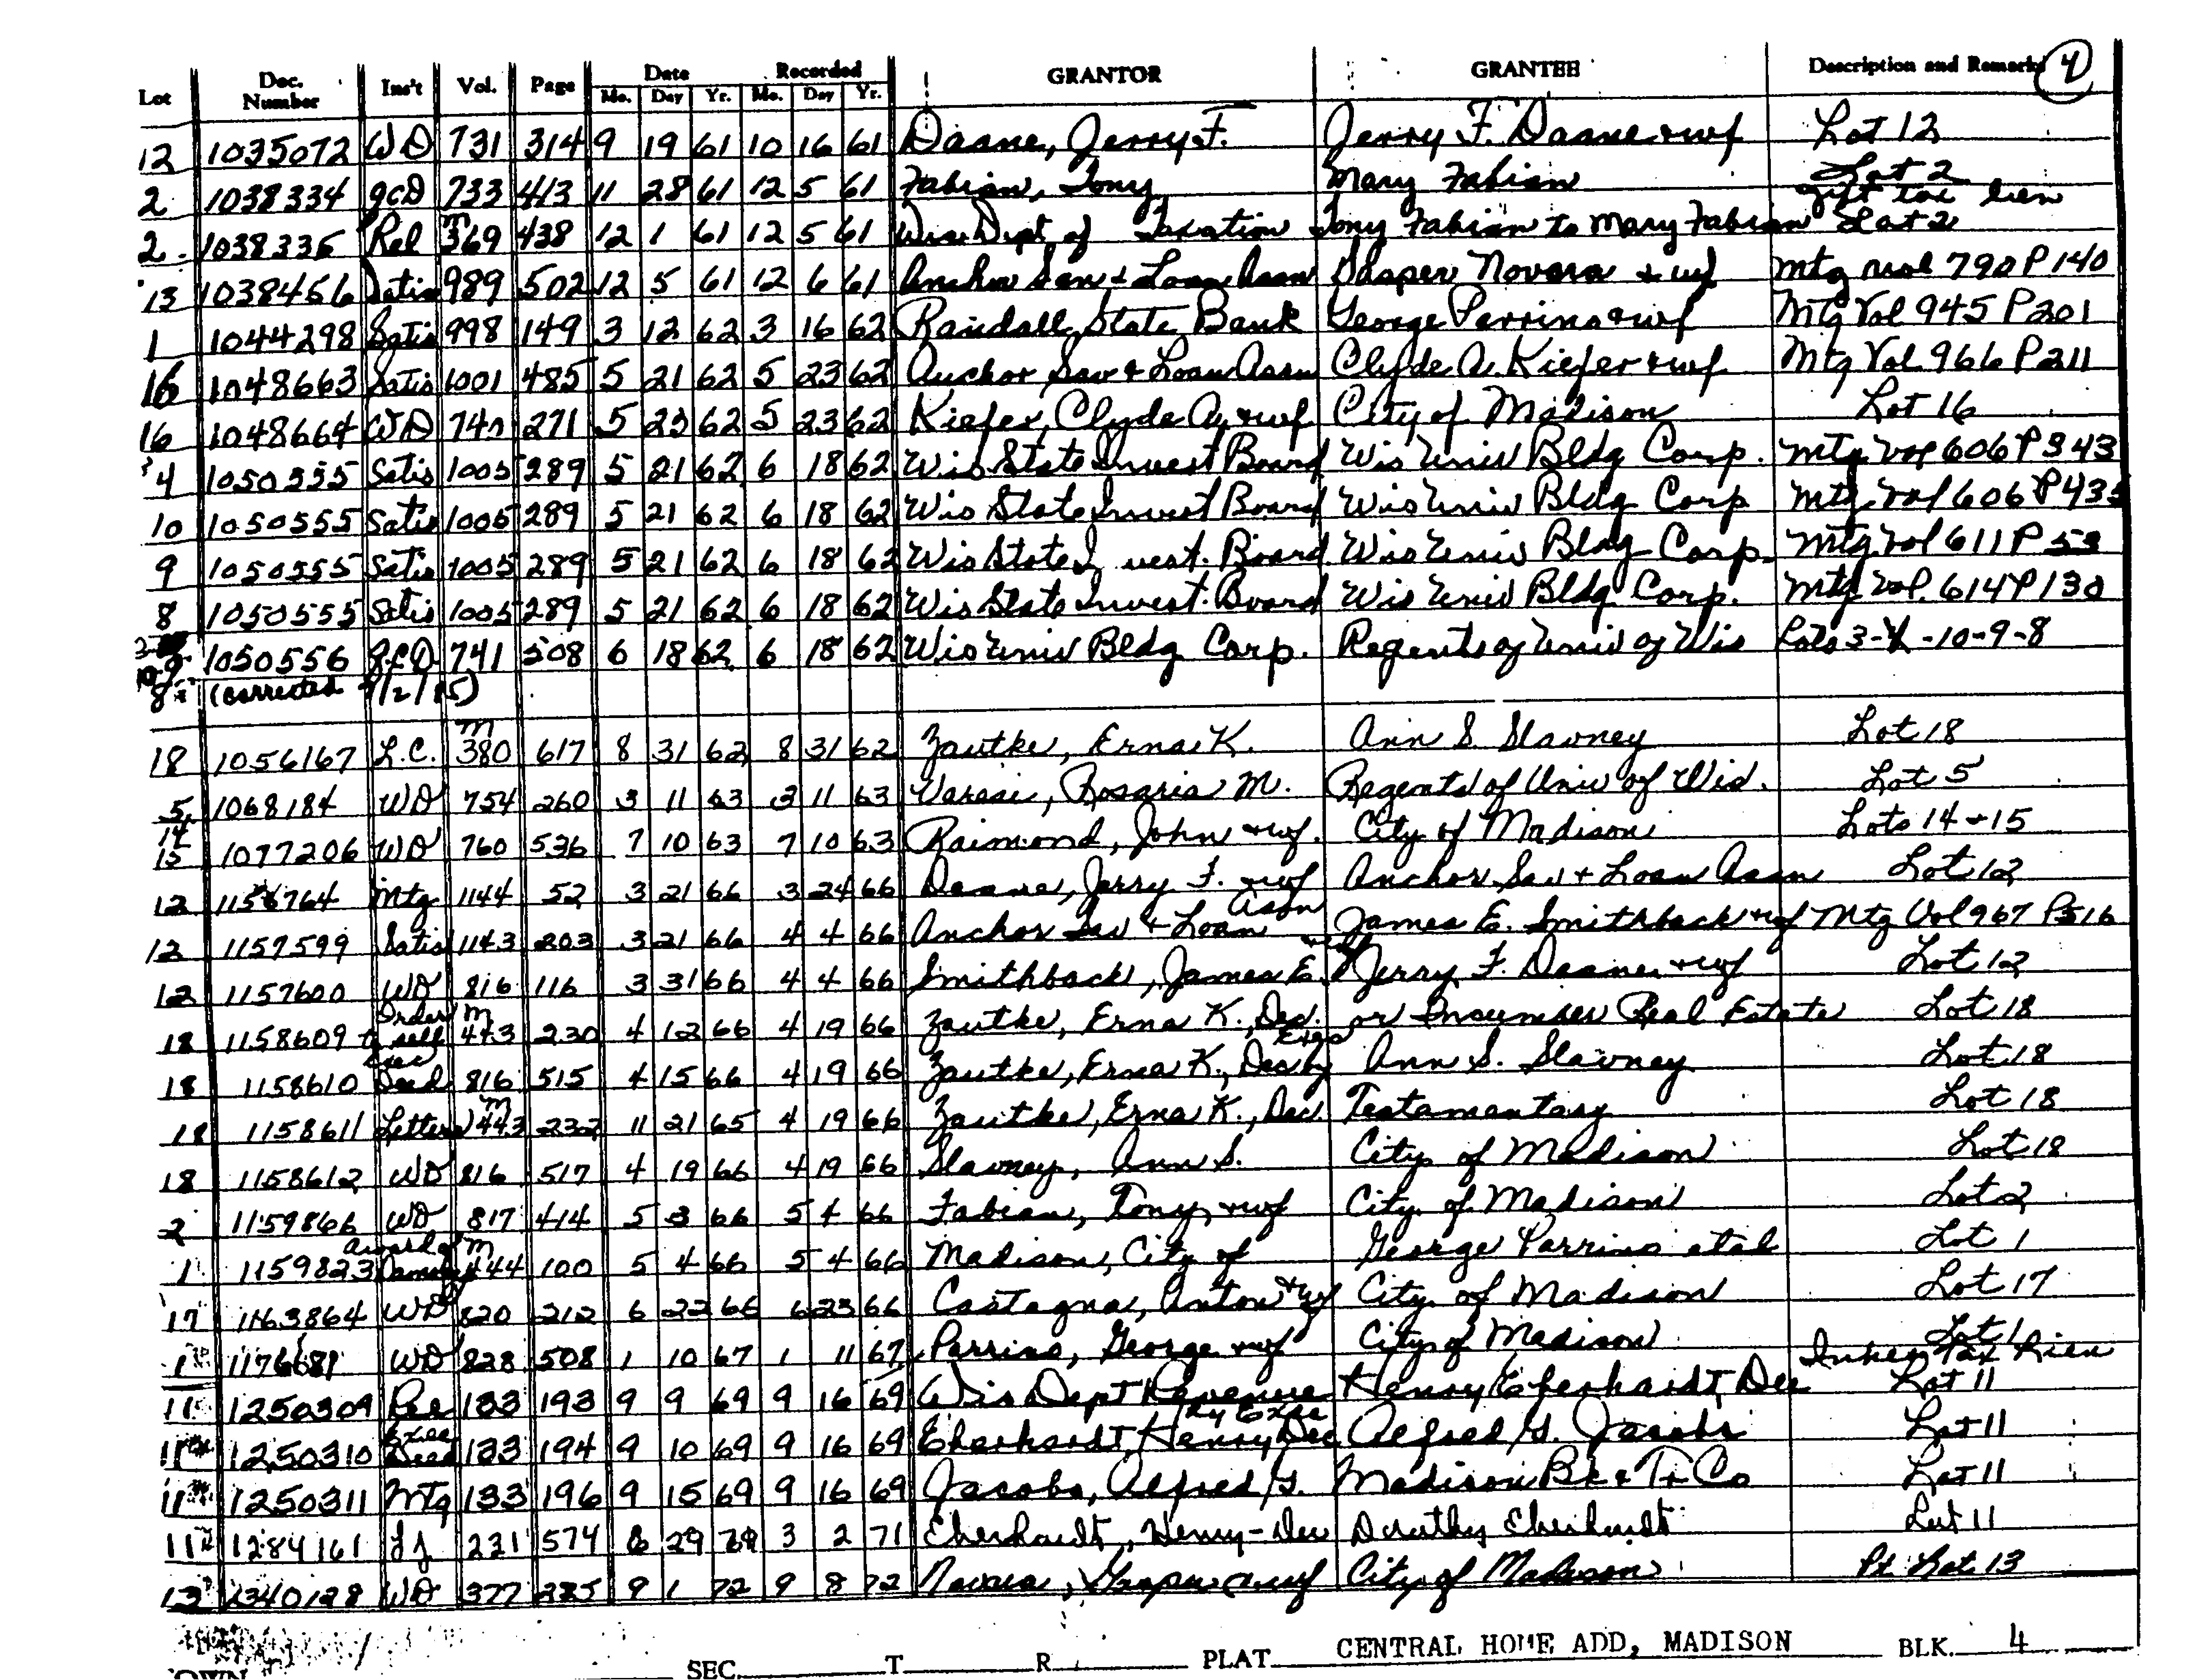 Lot Doc. Number Ins't Vol. Page Date Mo. Day Yr. Recorded Mo. Day Yr. GRANTOR GRANTEE Description and Remarks 4
12 1035072 WD 731 314 9 19 61 10 16 61 Daane, Jerry F. Jerry F. Daane + wf Lot 12
2 1038334 QCD 733 413 11 28 61 12 5 61 Fabian, Tony Mary Fabian Lot 2
2 1038335 Rel M 369 438 12 1 61 12 5 61 Wis Dept of Taxation Tony Fabian to Mary Fabian gift tax lien Lot 2
13 1038456 Satis 989 502 12 5 61 12 6 61 Anchor Sav + Loan Assn Gasper Novara + wf Mtg Vol 790 P 140
1 1044298 Satis 998 149 3 12 62 3 16 62 Randall State Bank George Parrino + wf Mtg Vol 945 P 201
16 1048663 Satis 1001 485 5 21 62 5 23 62 Anchor Sav + Loan Assn Clyde A. Kiefer + wf Mtg Vol 966 P 211
16 1048664 WD 740 271 5 23 62 5 23 62 Kiefer, Clyde A. + wf City of Madison Lot 16
4 1050555 Satis 1005 289 5 21 62 6 18 62 Wis State Invest Board Wis Univ Bldg Corp. Mtg Vol 606 P 343
10 1050555 Satis 1005 289 5 21 62 6 18 62 Wis State Invest Board Wis Univ Bldg Corp Mtg Vol 606 P 435
9 1050555 Satis 1005 289 5 21 62 6 18 62 Wis State Invest. Board Wis Univ Bldg Corp. Mtg Vol 611 P
8 1050555 Satis 1005 289 5 21 62 6 18 62 Wis State Invest. Board Wis Univ Bldg Corp. Mtg Vol. 614 P 130
10-9 1050556 QCD 741 508 6 18 62 6 18 62 Wis Univ Bldg Corp. Regents of Univ of Wis Lots 3-4-10-9-8
8 (corrected
18 1056167 L.C. M 380 617 8 31 62 8 31 62 Zautke, Erna K. Ann S. Slavney Lot 18
5 1068184 WD 754 260 3 11 63 3 11 63 Varesi, Rosario M. Regents of Univ of Wis. Lot 5
14 15 1077206 WD 760 536 7 10 63 7 10 63 Raimond, John + wf. City of Madison Lots 14 + 15
12 1156764 Mtg 1144 52 3 21 66 3 24 66 Daane, Jerry F. + wf Anchor Sav + Loan Assn Lot 12
12 1157599 Satis 1143 203 3 21 66 4 4 66 Anchor Sav + Loan Assn James E. Smithback + wf Mtg Vol 967 P 516
12 1157600 WD 816 116 3 31 66 4 4 66 Smithback, James E. + wf Jerry F. Daane + wf Lot 12
18 1158609 Order to sell M 443 230 4 12 66 4 19 66 Zautke, Erna K., Dec. or Incumber Real Estate Lot 18
18 1158610 Exec Deed 816 515 4 15 66 4 19 66 Zautke, Erna K., Dec by Exrs Ann S. Slavney Lot 18
18 1158611 Letters M 443 232 11 21 65 4 19 66 Zautke, Erna K., Dec. Testamentary Lot 18
18 1158612 WD 816 517 4 19 66 4 19 66 Slavney, Ann S. City of Madison Lot 18
2 1159866 WD 817 414 5 3 66 5 4 66 Fabian, Tony, + wf City of Madison Lot 2
1 1159823 Award of Damages M 444 100 5 4 66 5 4 66 Madison, City of George Parrino et al Lot 1
17 1163864 WD 820 212 6 22 66 6 23 66 Castagna, Anton + wf City of Madison Lot 17
1 1176681 WD 828 508 1 10 67 1 11 67 Parrino, George + wf City of Madison Lot 1
11 1250309 Rel 133 193 9 9 69 9 16 69 Wis Dept Revenue Henry Eberhardt, Dec Inher Tax Lien Lot 11
11 1250310 Exec Deed 133 194 9 10 69 9 16 69 Eberhardt, Henry Dec by Exec Alfred G. Jacobs Lot 11
11 1250311 Mtg 133 196 9 15 69 9 16 69 Jacobs, Alfred G. Madison Bk & Tr Co Lot 11
11 1284161 FJ 231 574 29 3 2 71 Eberhardt, Henry - Dec Dorothy Eberhardt Lot 11
13 1340128 WD 377 9 1 72 9 8 72 Novara, Gasper + wf City of Madison Pt Lot 13
SEC. T R PLAT CENTRAL HOME ADD, MADISON BLK. 4